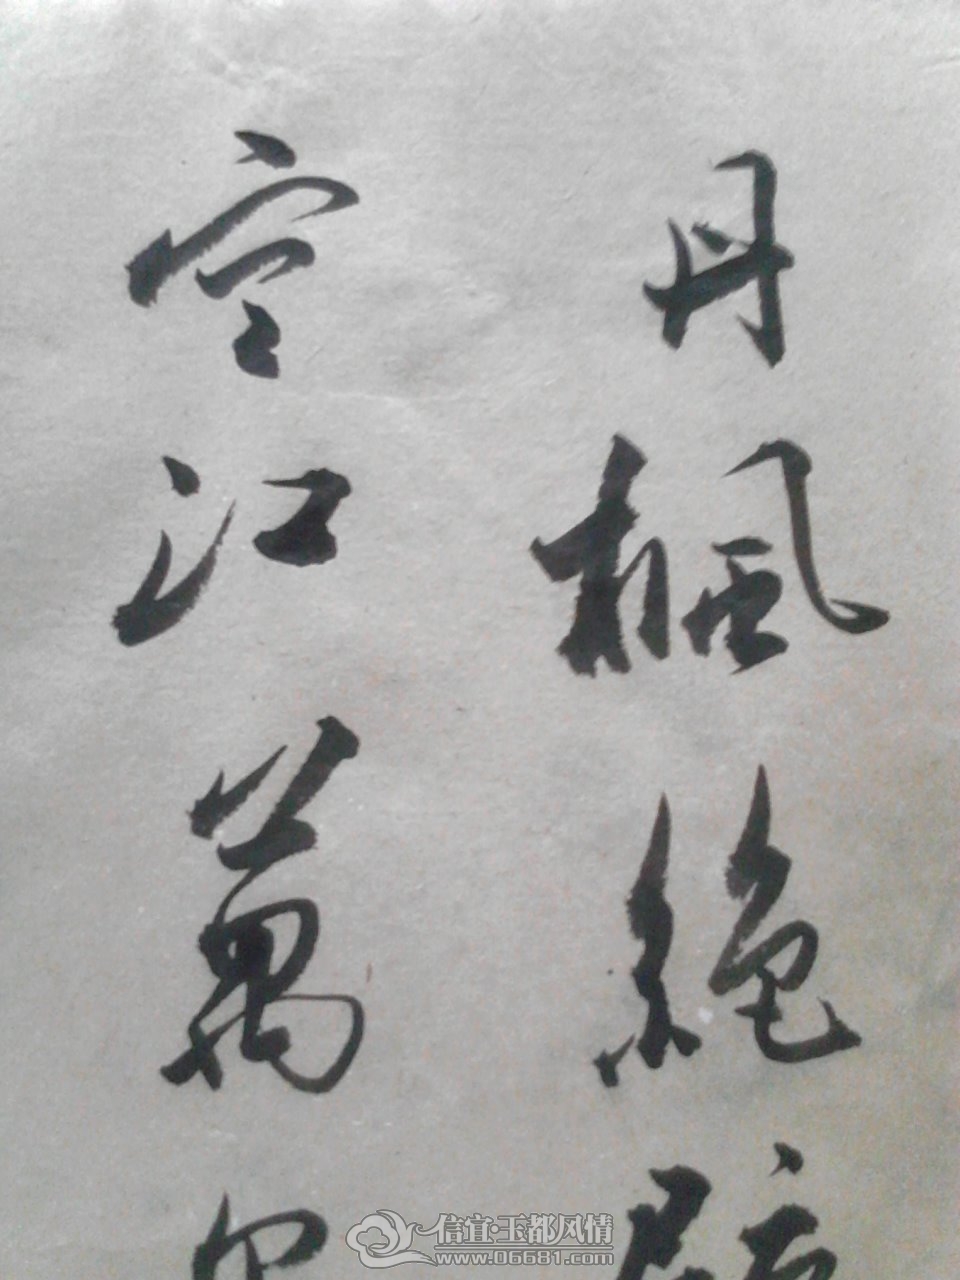 丹楓絕壁
空江萬里
信宜·玉都风情
www.06681.com